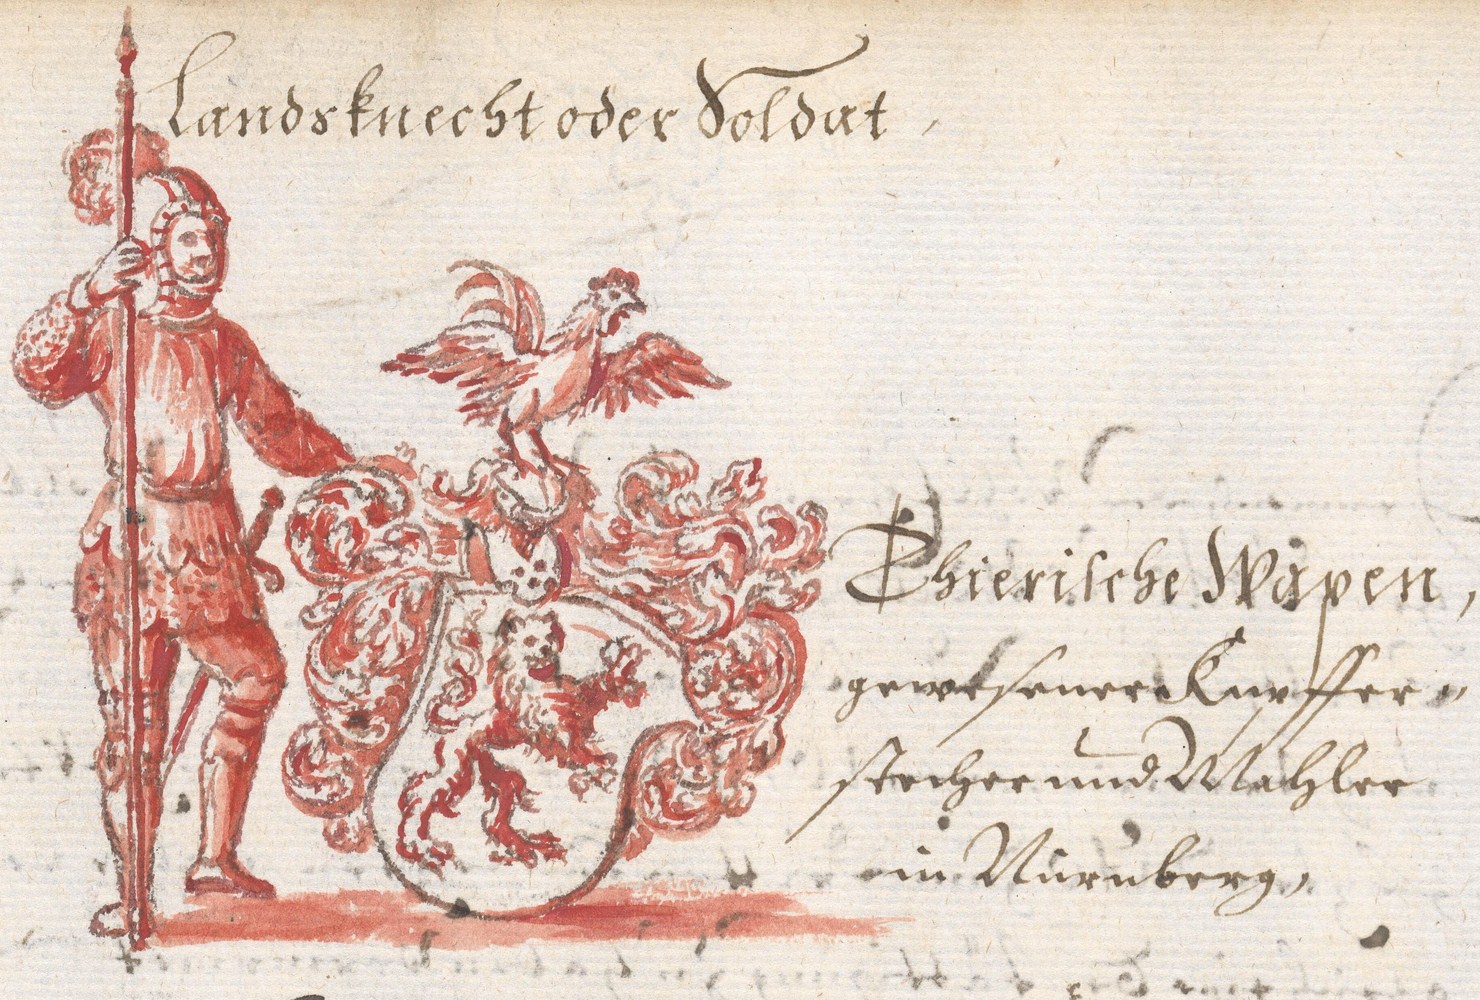 Landsknecht oder Soldat,
Thierische Wapen,
gewesener Kupffer-
stecher und Mahler
in Nürnberg,